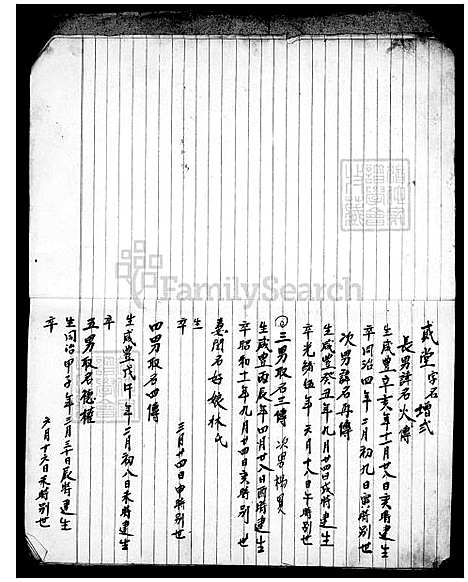 貳堂字名增式
長男諱名火傳
生咸豐辛亥年十一月廿八日亥時建生
卒同治四年二月初九日寅時別世
次男諱名再傳
生咸豐癸丑年九月廿四日戌時建生
卒光緒伍年六月十八日午時別世
三男取名三傳 次男楊男
生咸豐丙辰年四月廿八日酉時建生
卒昭和十一年九月廿四日亥時別世
妻閨名好娘林氏
生
卒 三月廿四日申時別世
四男取名四傳
生咸豐戊午年二月初八日未時建生
卒
五男取名德權
生同治甲子年三月三十日辰時建生
卒 六月十六日未時別世
FamilySearch